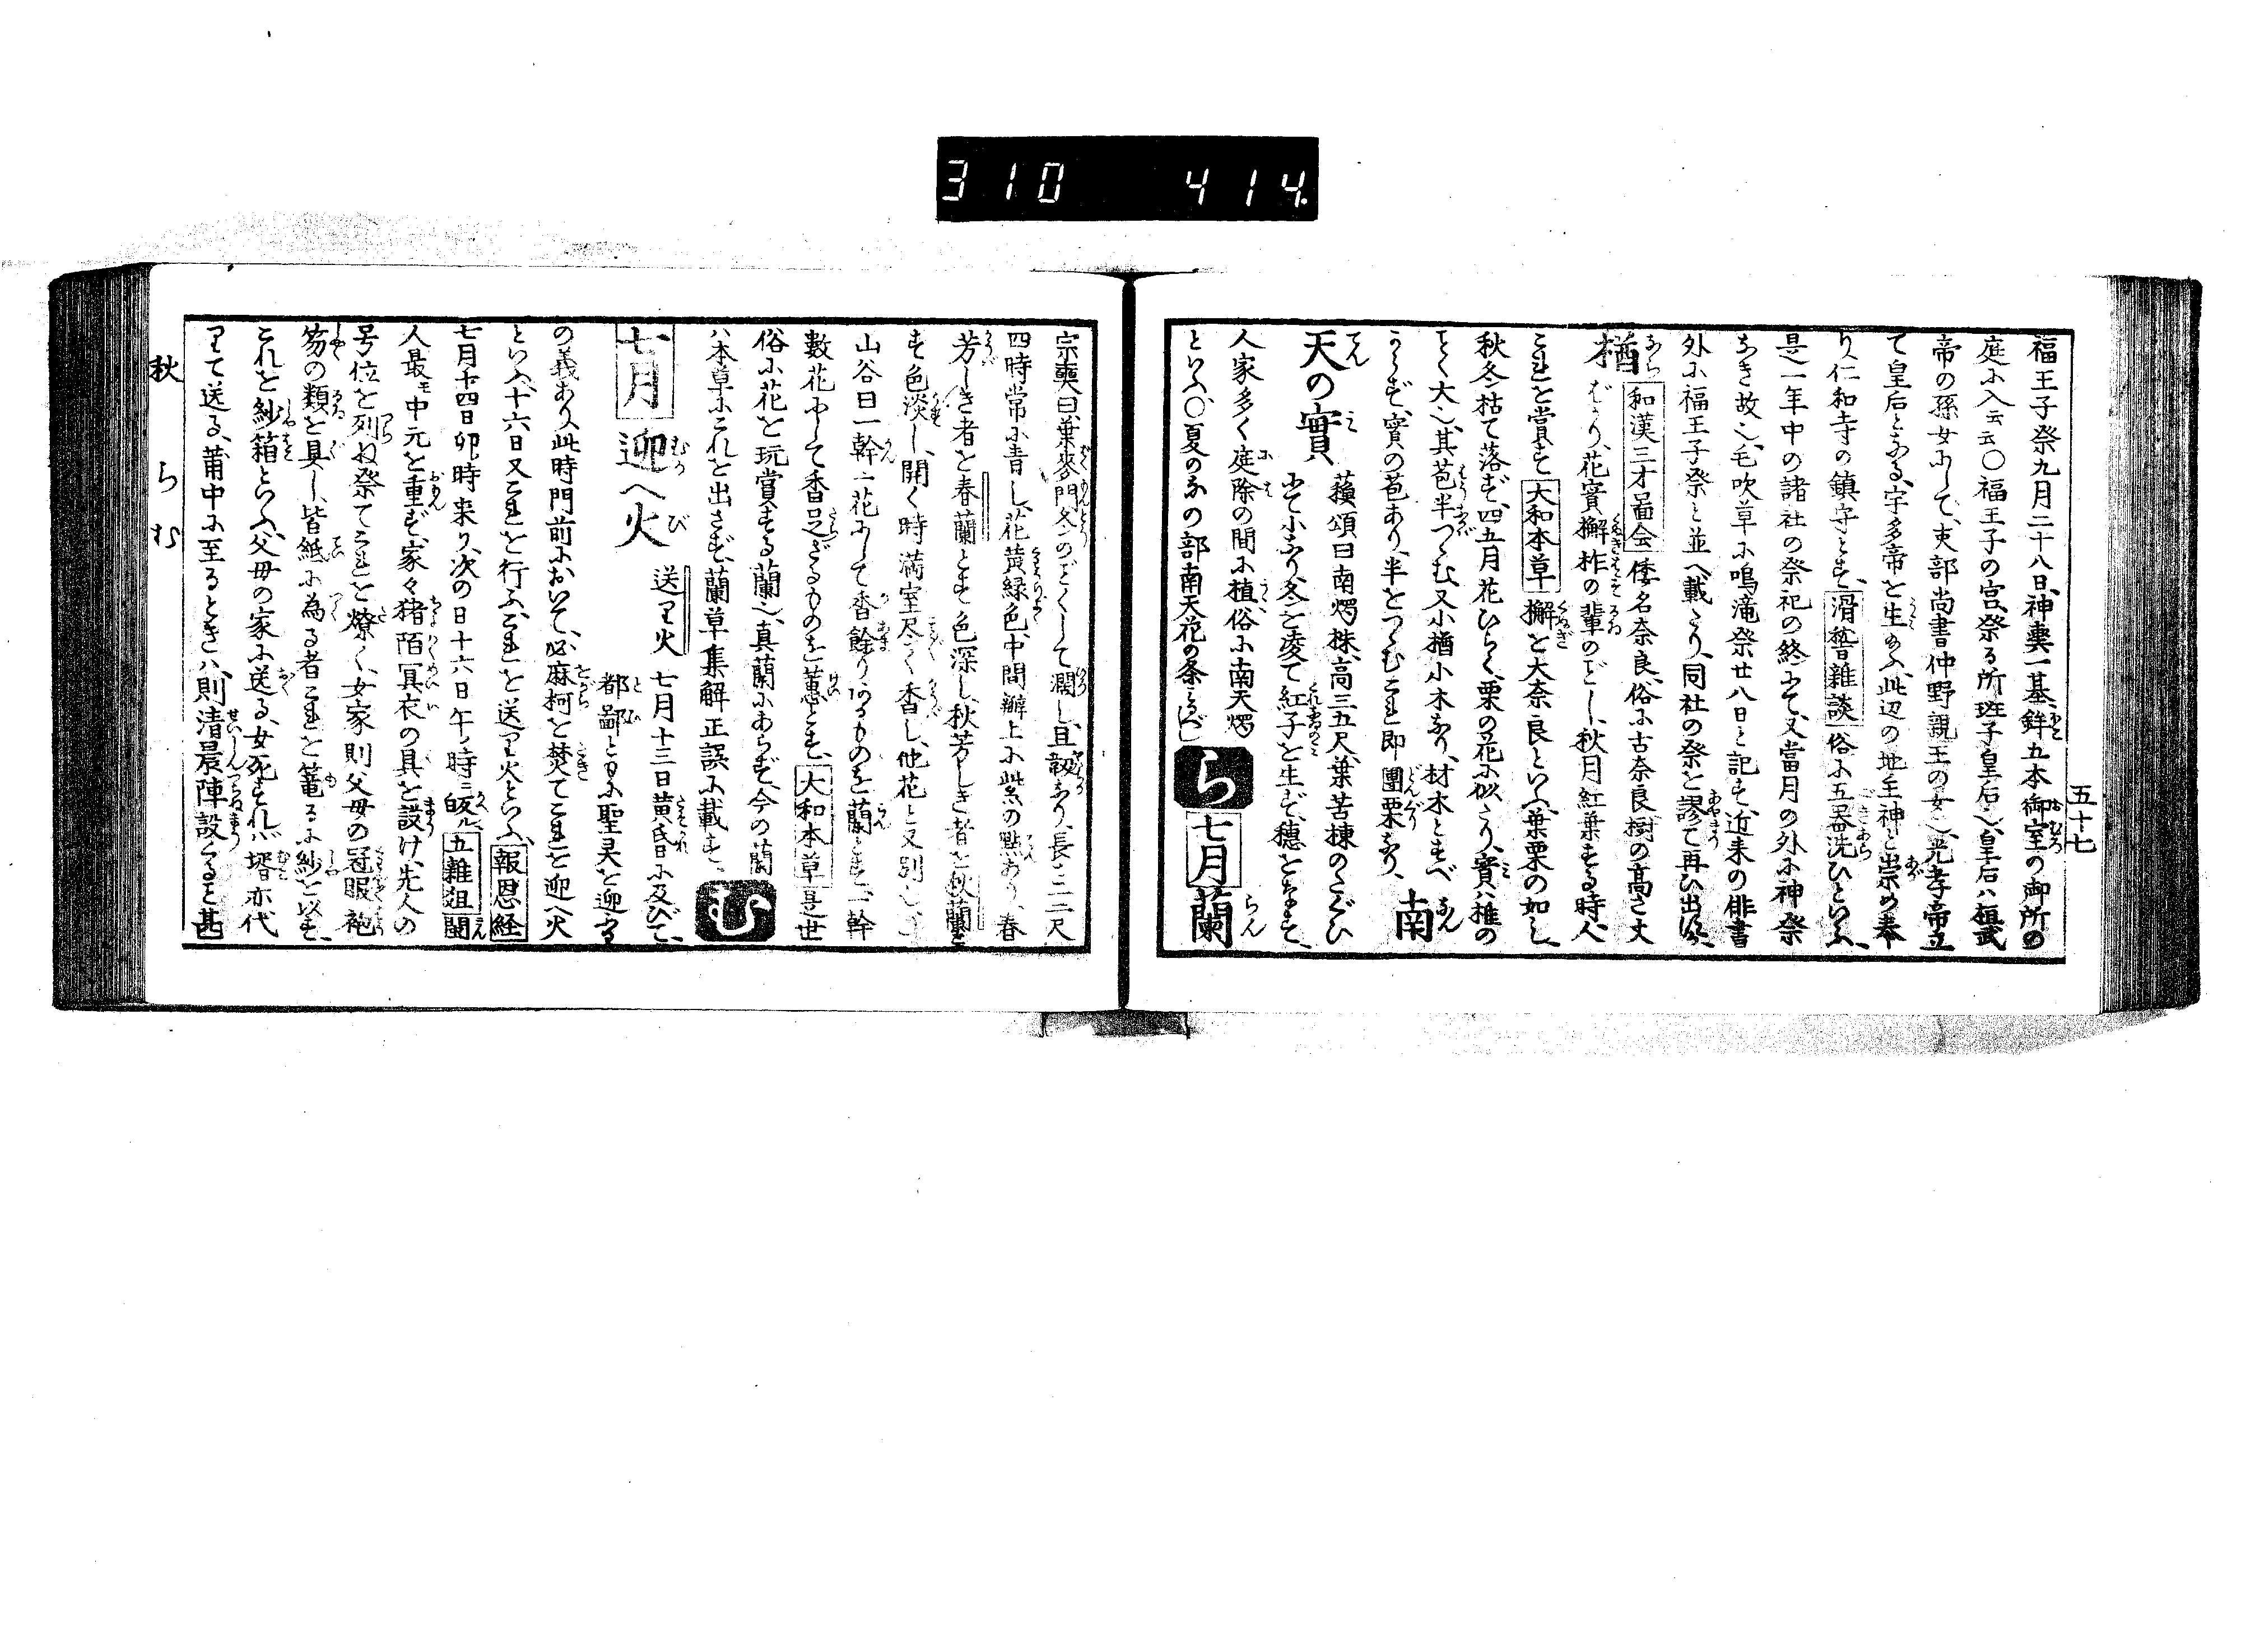 310 414.
五十七
福王子祭九月二十八日、神輿一基、鉾五本御室の御所の
庭に入云云〇福王子の宮、祭る所班子皇后也、皇后ハ桓武
帝の孫女にして、吏部尚書仲野親王の女也、光孝帝立
て皇后となる、宇多帝を生給ふ、此辺の地主神と崇め奉
り、仁和寺の鎮守とす、滑稽雑談俗に五器洗ひといふ、
是一年中の諸社の祭祀の終にて、又當月の外に神祭
なき故也、毛吹草に鳴滝祭廿八日と記す、近来の俳書
外に福王子祭と並へ載たり、同社の祭を謬て再ひ出せり、
楢 和漢三才啚会倭名奈良、俗に古奈良、樹の高さ丈
ばかり、花實檞柞の輩のごとし、秋月紅葉する時、人
これを賞す大和本草檞を大奈良といふ、葉栗の如し、
秋冬枯て落ず、四五月花ひらく、栗の花に似たり、實ハ椎の
ごとく大也、其苞半つゝむ、又小楢小木なり、材木とすべ
からず、實の苞あり、半をつゝむこれ即團栗なり、 南
天の實 蘓頌曰南燭株、高三五尺、葉苦楝のたぐひ
にて小なり、冬を凌て紅子を生ず、穂をなす、
人家多く庭除の間に植、俗に南天燭
といふ、〇夏のなの部南天花の条みるべし ら 七月 蘭
宗奭曰葉麥門冬のごとくして濶し、且韌なり、長一二尺
四時常に青し、花黄緑色、中間瓣上に紫の點あり、春
芳しき者を春蘭とす色深し、秋芳しき者を秋蘭と
す色淡し、開く時満室尽く香し、他花と又別也、
山谷曰一幹一花にして香餘りあるものを蘭とす、一幹
數花にして香足ざるものを蕙とす、大和本草是世
俗に花を玩賞する蘭也、真蘭にあらず、今の蘭
ハ本草にこれを出さず、蘭草集解正誤に載す、 む
七月 迎へ火 送り火 七月十三日黄昏に及びて、
都鄙ともに聖㚑を迎ふる
の義あり、此時門前において、必麻柯を焚てこれを迎へ火
といふ、十六日又これを行ふ、これを送り火といふ、報恩経
七月十四日卯ノ時来り、次の日十六日午ノ時ニ皈ル五雜爼閩
人最モ中元を重ず、家々猪陌冥衣の具を設け、先人の
号位を列ね祭てこれを燎く、女家則父母の冠服袍
笏の類を具し、皆紙に為る者これを篭るに紗を以す、
これを紗箱といふ、父母の家に送る、女死すれば婿亦代
りて送る、莆中に至るときハ、則清晨陣設くると甚
秋 らむ